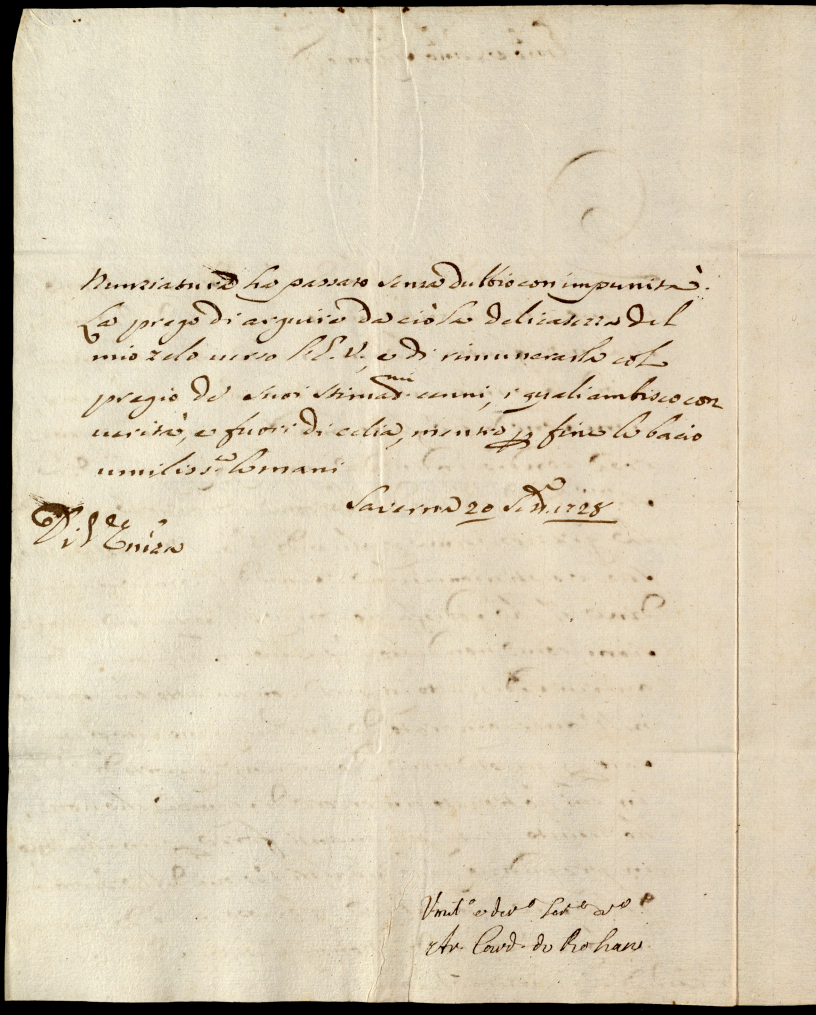 Nunziatura ha passato senza dubbio con impunità.
La prego di arguire da ciò la delicatezza del
mio zelo verso l'E. V., e di rimunerarla col
pregio de' suoi stimad.mi cenni, i quali ambisco con
verità, e fuori di celia, mentre per fine le bacio
umiliss.te le mani
Saverna 20 1728
Di V. Emza
Umil.o e dev.o Ser.e v.o
Ar. Card. de Rohan